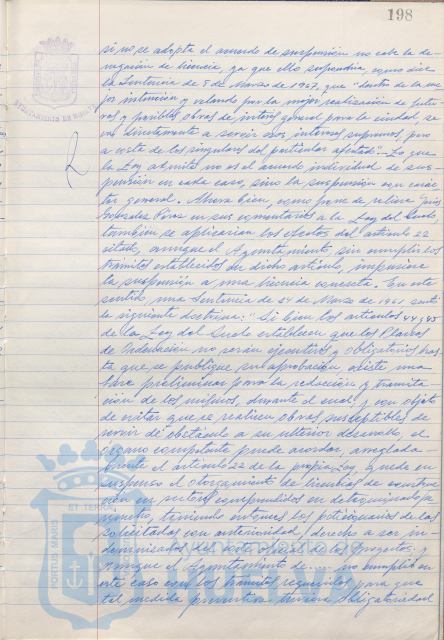 198
si no se adopta el acuerdo de suspensión no cabe la de-
negación de licencia, ya que ello supondría, como dice
la Sentencia de 5 de Marzo de 1967, que "dentro de la me-
jor intención y velando por la mejor realización de futu-
ras y posibles obras de interés general para la ciudad, se
va directamente a servir esos intereses supremos, pero
a costa de los singulares del particular afectado".- Lo que
la Ley admite no es el acuerdo individual de sus-
pensión en cada caso, sino la suspensión con carác-
ter general. Ahora bien, como pone de relieve
González Pérez en sus comentarios a la Ley del Suelo,
también se aplicarían los efectos del artículo 22
citado, aunque el Ayuntamiento, sin cumplir los
trámites establecidos en dicho artículo, impusiese
la suspensión a una licencia concreta. En este
sentido, una Sentencia de 24 de Marzo de 1961 sentó
la siguiente doctrina: "Si bien los artículos 44 y 45
de la Ley del Suelo establecen que los Planes
de Ordenación no serán ejecutivos y obligatorios has-
ta que se publique su aprobación, existe una
fase preliminar para la redacción y tramita-
ción de los mismos, durante el cual y con objeto
de evitar que se realicen obras susceptibles de
servir de obstáculo a su ulterior desarrollo, el
órgano competente puede acordar, arreglada-
mente al artículo 22 de la propia Ley, quede en
suspenso el otorgamiento de licencias de construc-
ción en sectores comprendidos en determinado pe-
rímetro, teniendo entonces los peticionarios de las
solicitadas con anterioridad, derecho a ser in-
demnizados del coste oficial de los proyectos; y
aunque el Ayuntamiento de ..... no cumplió en
este caso con los trámites requeridos para que
tal medida preventiva tuviera obligatoriedad
PORTUS MARIS
ET TERRAE